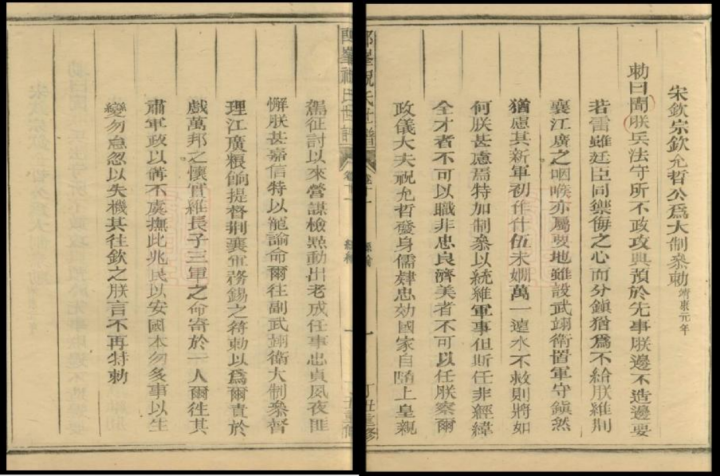 宋欽宗欽允哲公爲大制參勅靖康元年
勅曰聞朕兵法守所不政攻興預於先事朕邊不造邊要
若雷雖廷臣同樂侮之心而分鎮猶爲不給朕維荆
襄江廣之咽喉亦屬要地雖設武翊衛置軍守鎮然
猶慮其新軍初作什伍未嫺萬一遠水不救則將如
何朕甚慮焉特加制參以統維軍事但斯任非經緯
全才者不可以職非忠良濟美者不可以任朕察爾
政儀大夫祝允哲發身儒肆忠効國家自隨上皇親
駕征討以來營謀檢點動出老成任事忠貞夙夜匪
懈朕甚嘉信特以寵諭命爾往副武翊衛大制參督
理江廣粮餉提督荆襄軍務錫之符勅以爲爾責於
戲萬邦之懷實維長子三軍之命寄於一人爾往其
肅軍政以備不虞撫此兆民以安國本勿多事以生
變勿怠忽以失機其往欽之朕言不再特勅
郎峯祝氏世譜
卷十一